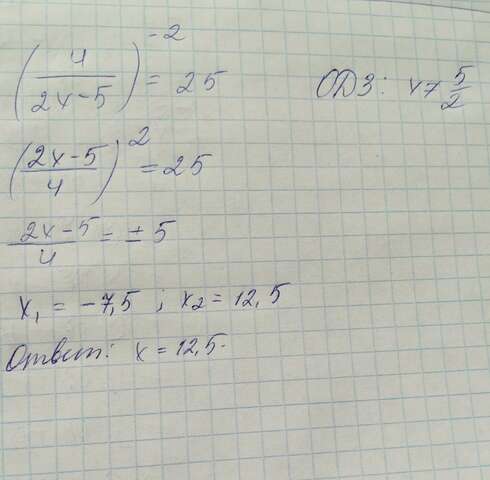 (4/(2x-5))^-2 = 25 ОДЗ: x > 5/2
((2x-5)/4)^2 = 25
(2x-5)/4 = ± 5
x₁ = -7,5 ; x₂ = 12,5
Ответ: x = 12,5.